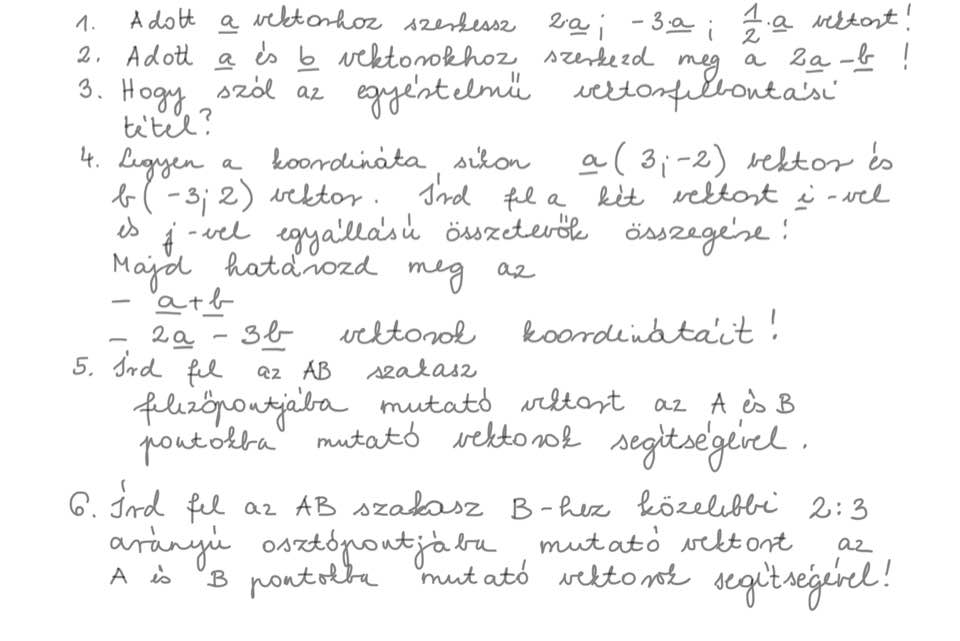 1. Adott a vektorhoz szerkessz 2·a; -3·a; 1/2·a vektort!
2. Adott a és b vektorokhoz szerkezd meg a 2a-b !
3. Hogy szól az egyértelmű vektorfelbontási
tétel?
4. Legyen a koordináta síkon a(3;-2) vektor és
b(-3;2) vektor. Írd fel a két vektort i-vel
és j-vel egyállású összetevők összegére!
Majd határozd meg az
- a+b
- 2a - 3b vektorok koordinátáit!
5. Írd fel az AB szakasz
felezőpontjába mutató vektort az A és B
pontokba mutató vektorok segítségével.
6. Írd fel az AB szakasz B-hez közelebbi 2:3
arányú osztópontjába mutató vektort az
A és B pontokba mutató vektorok segítségével!